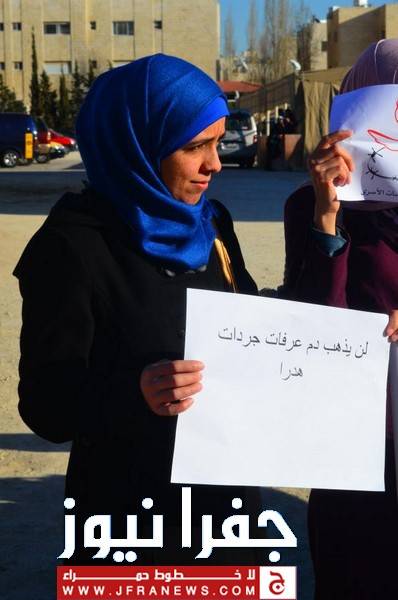 لن يذهب دم عرفات جردات
هدرا
جفرا نيوز
لا خطوط حمراء
WWW.JFRANEWS.COM